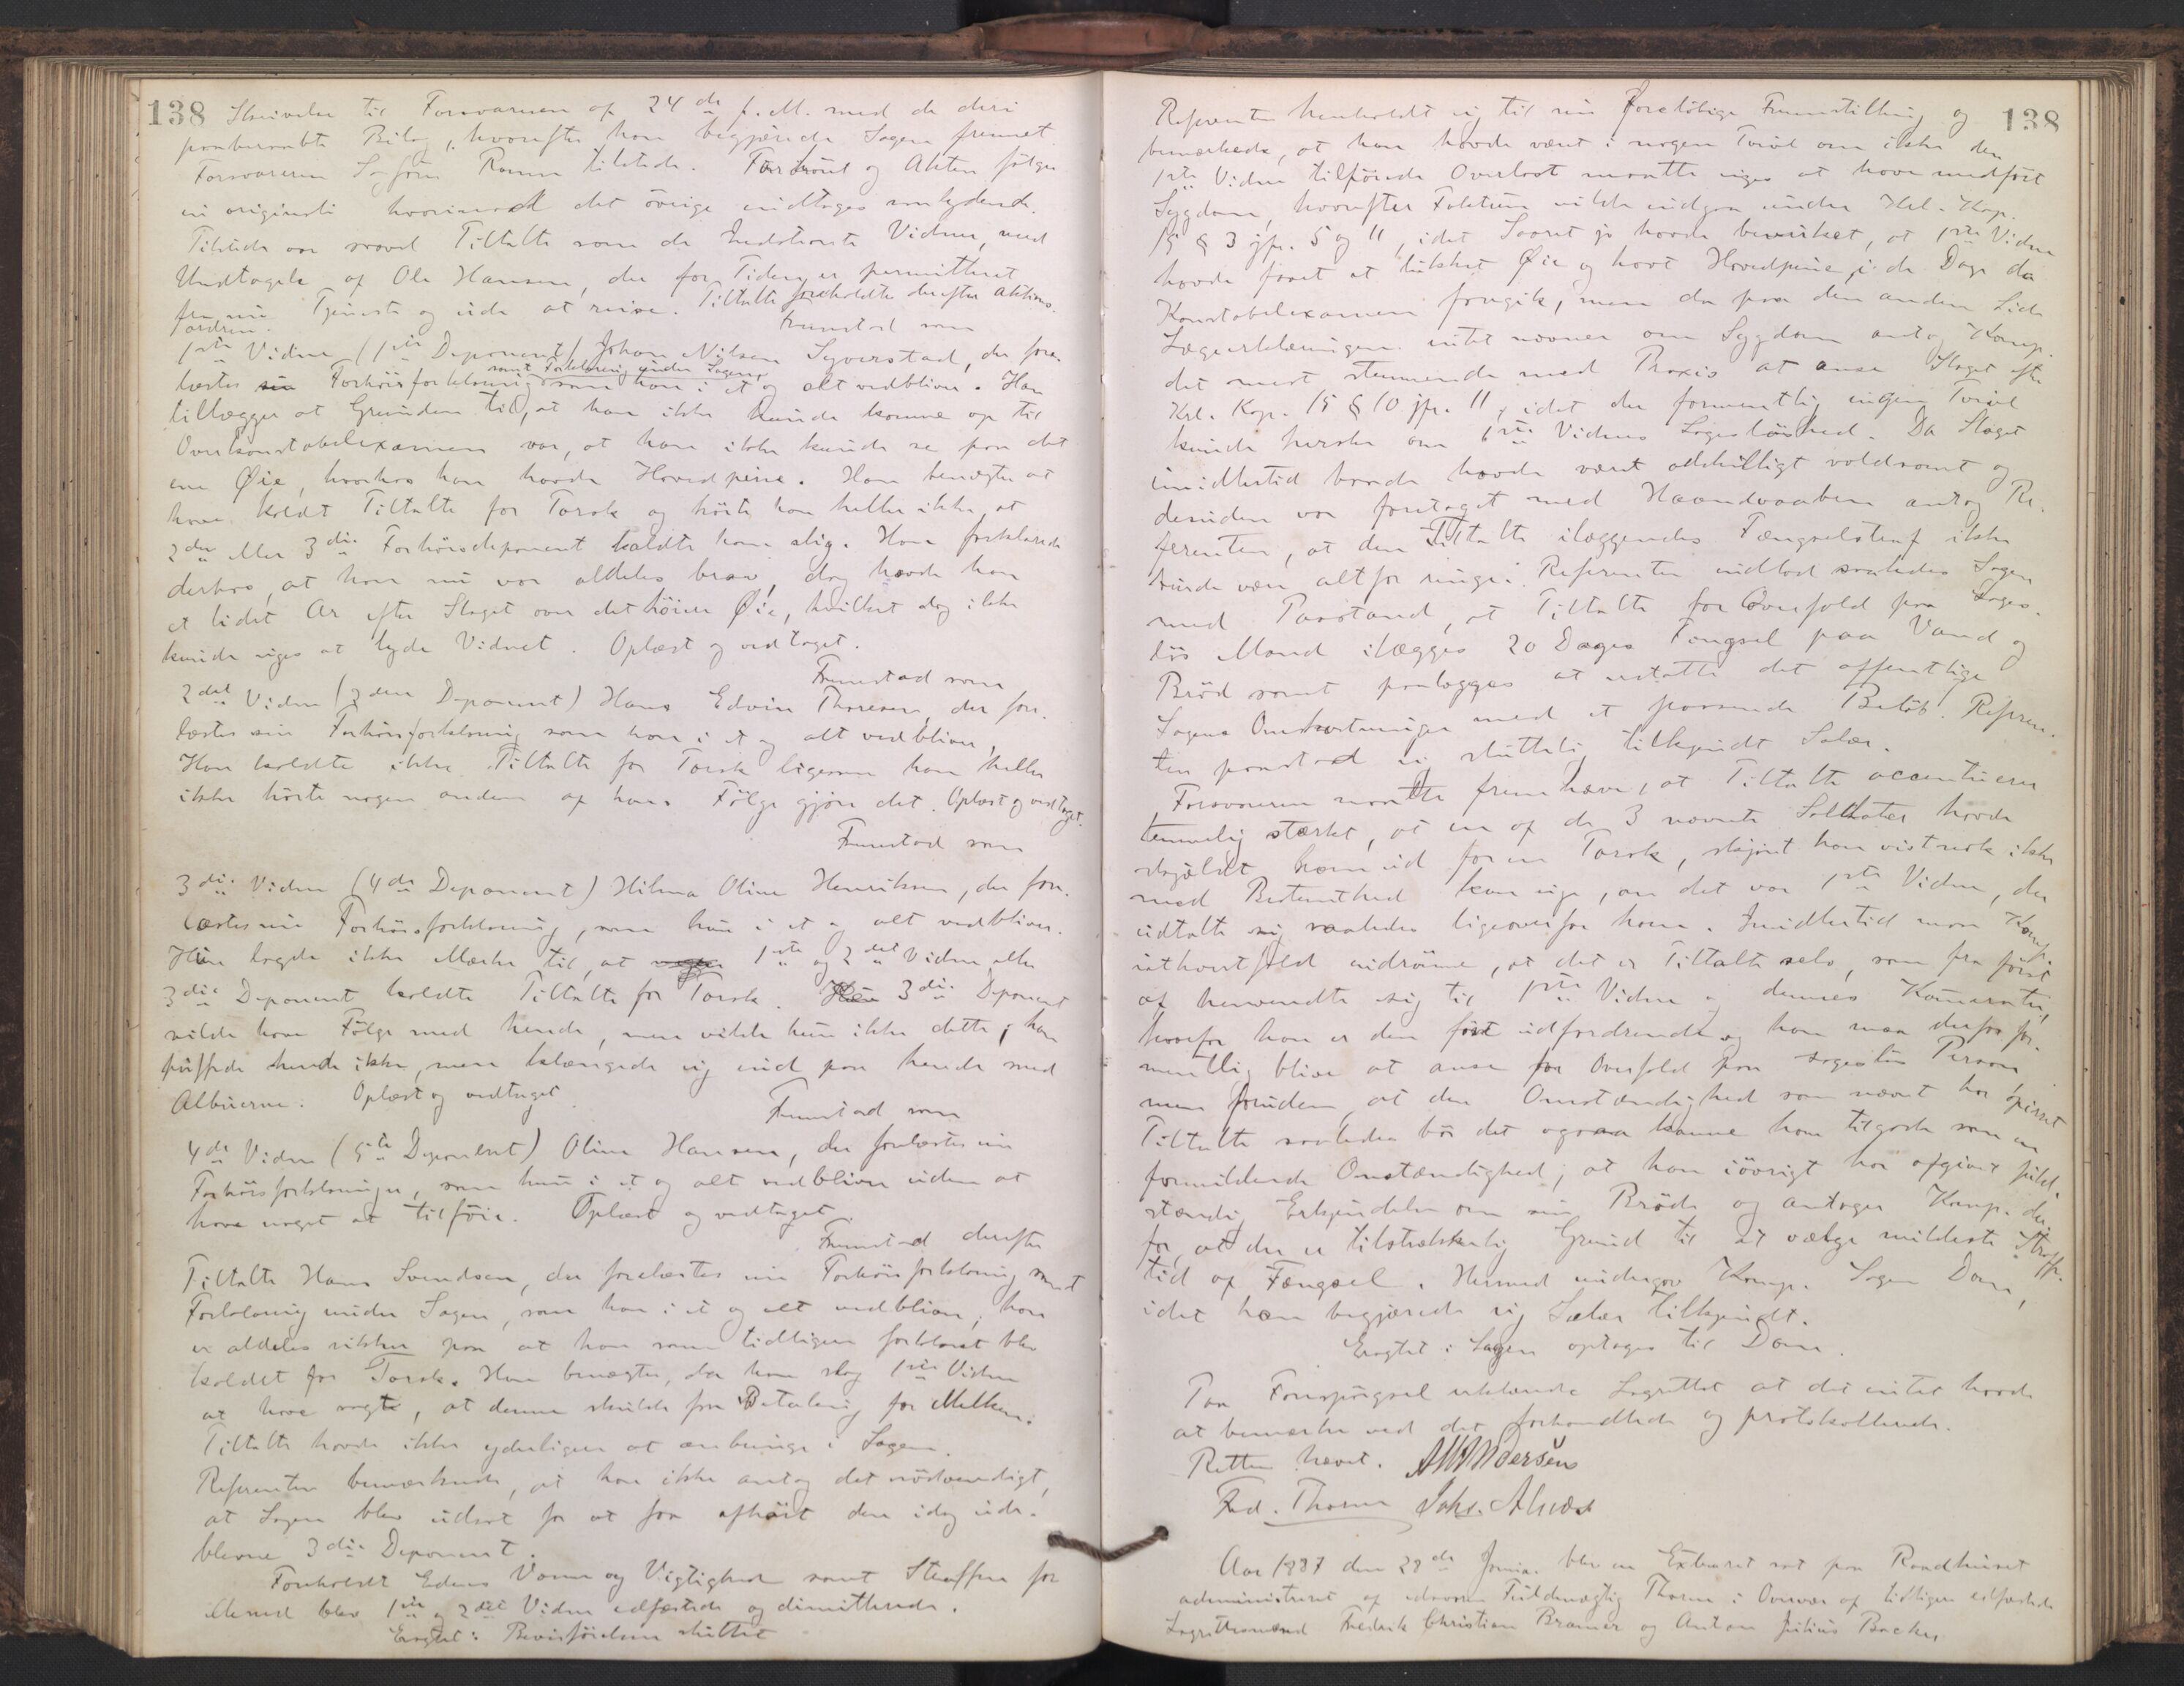 138 Skrivelse til Forsvareren af 24de f. M. med de deri
paaberaabte Bilag, hvorefter han begjærede Sagen fremmet.
Forsvareren Sagfører Ramm tilstede. Forhøret og Akten følger
in originali hvorimod det øvrige indtages
Tilstede var saavel Tiltalte som de Indstevnte Vidner, med
Undtagelse af Ole Hansen, der for Tiden er permitteret
fra sin Tjeneste og ude at reise. Tiltalte foreholdtes derefter Aktions-
ordren. Fremstod som
1ste Vidne (1ste Deponent) Johan Nilsen Syverstad, der fore-
samt Forklaring under Sagen,
læstes sin Forhørsforklaring som han i et og alt vedbliver. Han
tillægger at Grunden til, at han ikke kunde komme op til
Overkonstabelexamen var, at han ikke kunde se paa det
ene Øie, hvorhos han havde Hovedpine. Han benægter at
have kaldt Tiltalte for Torsk og hørte han heller ikke at
2den eller 3die Forhørsdeponent kaldte ham slig. Han forklarede
derhos, at han nu var aldeles brav, dog havde han
et lidet Ar efter Slaget over det høire Øie, hvilket dog ikke
kunde siges at lyde Vidnet. Oplæst og vedtaget.
Fremstod som
2det Vidne (2den Deponent) Hans Edvin Thoresen, der fore-
læstes sin Forhørsforklaring som han i et og alt vedbliver,
Han kaldte ikke Tiltalte for Torsk ligesom han heller
ikke hørte nogen anden af hans Følge gjøre det. Oplæst og vedtaget.
Fremstod som
3die Vidne (4de Deponent) Hilma Oline Henriksen, der fore-
læstes sin Forhørsforklaring, som hun i et og alt vedbliver.
Hun lagde ikke Mærke til, at 1ste og 2det Vidne eller
3die Deponent kaldte Tiltalte for Torsk. 3die Deponent
vilde have Følge med hende, men vilde hun ikke dette; han
puffede hende ikke, men slængede sig ind paa hende med
Albuerne. Oplæst og vedtaget
Fremstod som
4de Vidne (5te Deponent) Oline Hansen, der forelæstes sin
Forhørsforklaring, som hun i et og alt vedbliver uden at
have noget at tilføie. Oplæst og vedtaget.
Fremstod derefter
Tiltalte Hans Svendsen, der forelæstes sin Forhørsforklaring samt
Forklaring under Sagen, som han i et og alt vedbliver, han
er aldeles sikker paa at han som tidligere forklaret blev
kaldet for Torsk. Han benægter, da han slog 1ste Vidne
at have sagt, at denne skulde faa Betaling for Melken.
Tiltalte havde ikke yderligere at anbringe i Sagen.
Referenten bemærkede, at han ikke antog det nødvendigt,
at Sagen blev udsat for at faa afhørt den idag ude-
blevne 3die Deponent.
Foreholdt Edens Vanar og Vigtighed samt Straffen for
Mened blev 1ste og 2det Vidne edfæstede og dimitterede.
Eragtet: Bevisførelsen sluttet
138
Referenten henholdt sig til sin foreløbige Fremstilling og
bemærkede, at han havde været i nogen Tvivl om ikke den
1ste Vidne tilføiede Overlast maatte siges at have medført
Sygdom, hvorefter Faktum vilde indgaa under Krl. Kap.
15 § 3 jfr. 5 og 11, idet Saaret jo havde bevirket, at 1ste Vidne
havde faaet et lukket Øie og havt Hovedpine i de Dage da
Konstabelexamen foregik, men da paa den anden Side
Lægeerklæringen intet nævner om Sygdom antog Komp.
det mest stemmende med Praxis at anse Slaget efter
Krl. Kap. 15 § 10 jfr. 11, idet der formentlig ingen Tvivl
kunde herske om 1ste Vidnes Sagesløshed. Da Slaget
imidlertid havde været adskilligt voldsomt og
desuden var foretaget med Haandvaaben antog Re-
ferenten, at den Tiltalte ilæggendes Fængselstraf ikke
burde være altfor ringe. Referenten indlod saaledes Sagen
med Paastand, at Tiltalte for Overfald paa Sages-
løs Mand ilægges 20 Dages Fængsel paa Vand og
Brød samt paalægges at erstatte det offentlige
Sagens Omkostninger med et passende Beløb. Referen-
ten paastod sig sluttelig tilkjendt Salær.
Forsvareren maatte fremhæve, at Tiltalte accentuerer
temmelig stærkt, at en af de 3 nævnte Soldater havde
skjældt ham ud for en Torsk, skjønt han vistnok ikke
med Bestemthed kan sige, om det var 1ste Vidne, der
udtalte sig saaledes ligeoverfor ham. Imidlertid maa Komp.
iethvertfald indrømme, at det er Tiltalte selv, som fra først
af henvendte sig til 1ste Vidne og dennes Kamerater,
hvorfor han er den først udfordrende og han maa derfor for-
mentlig blive at anse for Overfald paa sagesløs Person
men foruden, at den Omstændighed som nævnt har opirret
Tiltalte saaledes bør det ogsaa komme ham tilgode som en
formildende Omstændighed; at han iøvrigt har afgivet fuld-
stændig Erkjendelse om sin Brøde og antager Komp. der-
for, at der er tilstrækkelig Grund til at vælge mildeste Straffe-
tid af Fængsel. Hermed indgav Komp. Sagen Dom,
idet han begjærede sig Salær tilkjendt.
Eragtet: Sagen optages til Dom.
Paa Forespørgsel erklærede Lagrettet at det intet havde
at bemærke ved det forhandlede og protokollerede.
Retten hævet. Andersen
Fred. Thorne Johs.
Aar 1887 den 28de Januar blev en Extraret sat paa Raadhuset
administreret af edsvoren Fuldmægtig Thorne i Overvær af tidligere edfæstede
Lagrettesmænd Frederik Christian Bramer og Anton Julius Backer